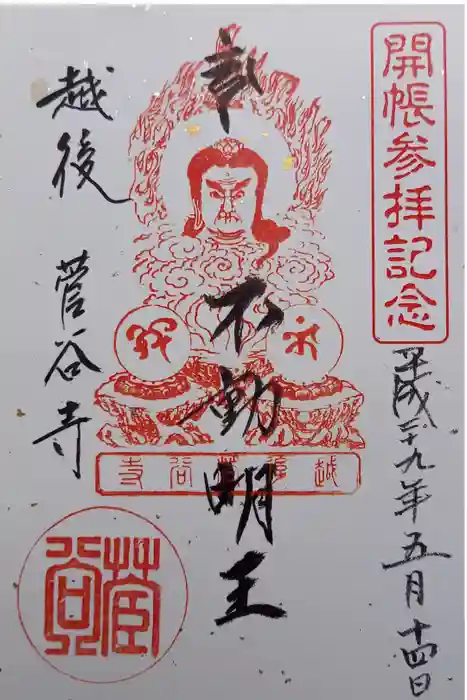 開帳参拝記念
平成二十九年五月十四日
奉
不動明王
越後菅谷寺
越後 菅谷寺
菅谷